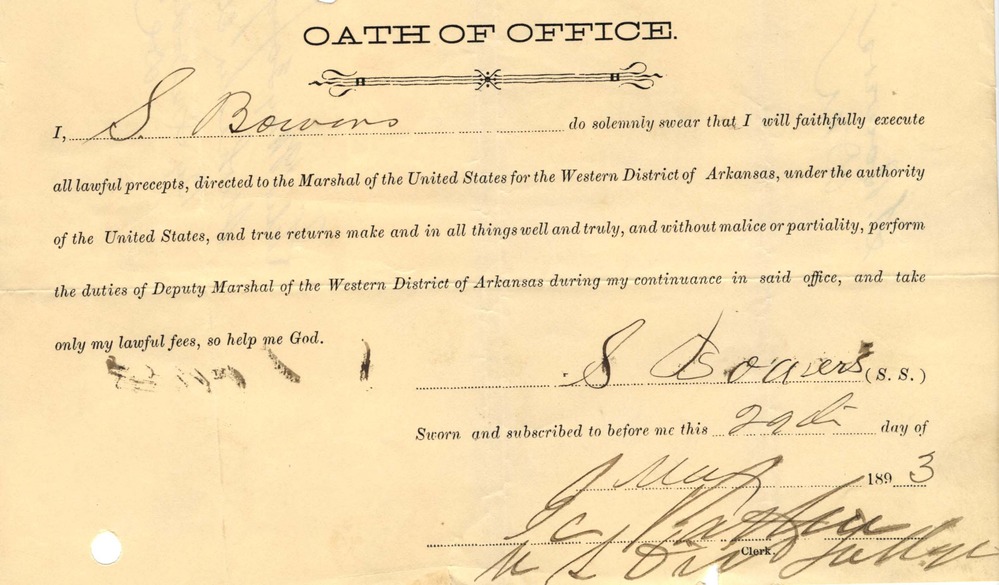 OATH OF OFFICE.
I, S Bowers do solemnly swear that I will faithfully execute
all lawful precepts, directed to the Marshal of the United States for the Western District of Arkansas, under the authority
of the United States, and true returns make and in all things well and truly, and without malice or partiality, perform
the duties of Deputy Marshal of the Western District of Arkansas during my continuance in said office, and take
only my lawful fees, so help me God.
S Bowers (S. S.)
Sworn and subscribed to before me this 29th day of
May 1893
I C Parker
Clerk.
U S Dist Judge